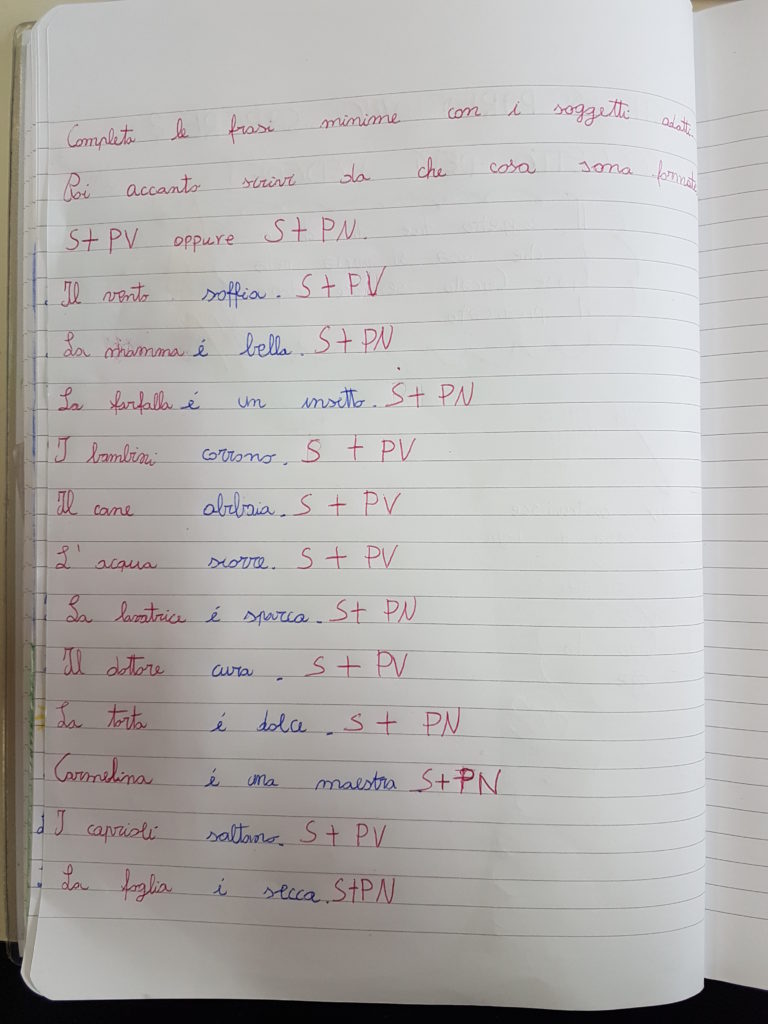 Completa le frasi minime con i soggetti adatti.
Poi accanto scrivi da che cosa sono formate
S+PV oppure S+PN.
Il vento soffia. S+PV
La mamma é bella. S+PN
La farfalla é un insetto. S+PN
I bambini corrono. S+PV
Il cane abbaia. S+PV
L'acqua scorre. S+PV
La lavatrice é sporca. S+PN
Il dottore cura. S+PV
La torta é dolce. S+PN
Carmelina é una maestra S+PN
I caprioli saltano. S+PV
La foglia é secca. S+PN